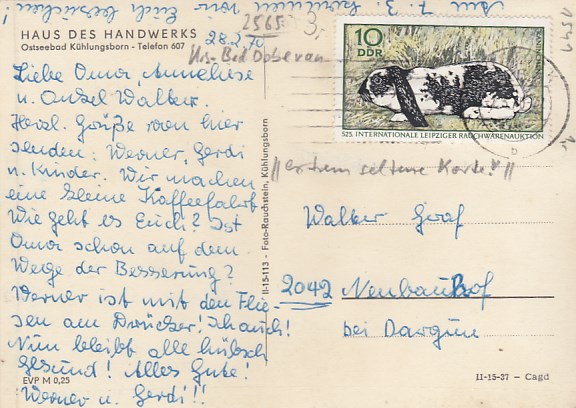 Am 7. 3. kommen wir Euch besuchen
HAUS DES HANDWERKS
Ostseebad Kühlungsborn - Telefon 607
28.2.70
2565
3,-
Krs. Bad Doberan
1541
Liebe Oma, Anneliese
u. Onkel Walter.
Herzl. Grüße von hier
senden: Werner, Gerdi
u. Kinder. Wir machen
eine kleine Kaffeefahrt
Wie geht es Euch? Ist
Oma schon auf dem
Wege der Besserung?
Werner ist mit den Flie-
sen am Drücker! Ich auch!
Nun bleibt alle hübsch
gesund! Alles Gute!
Werner u. Gerdi!!
EVP M 0,25
II-15-113 - Foto-Rauchstein, Kühlungsborn
10
DDR
525. INTERNATIONALE LEIPZIGER RAUCHWARENAUKTION
"extrem seltene Karte!"
Walter Graf
2042 Neubauhof
bei Dargun
II-15-37 - Cagd